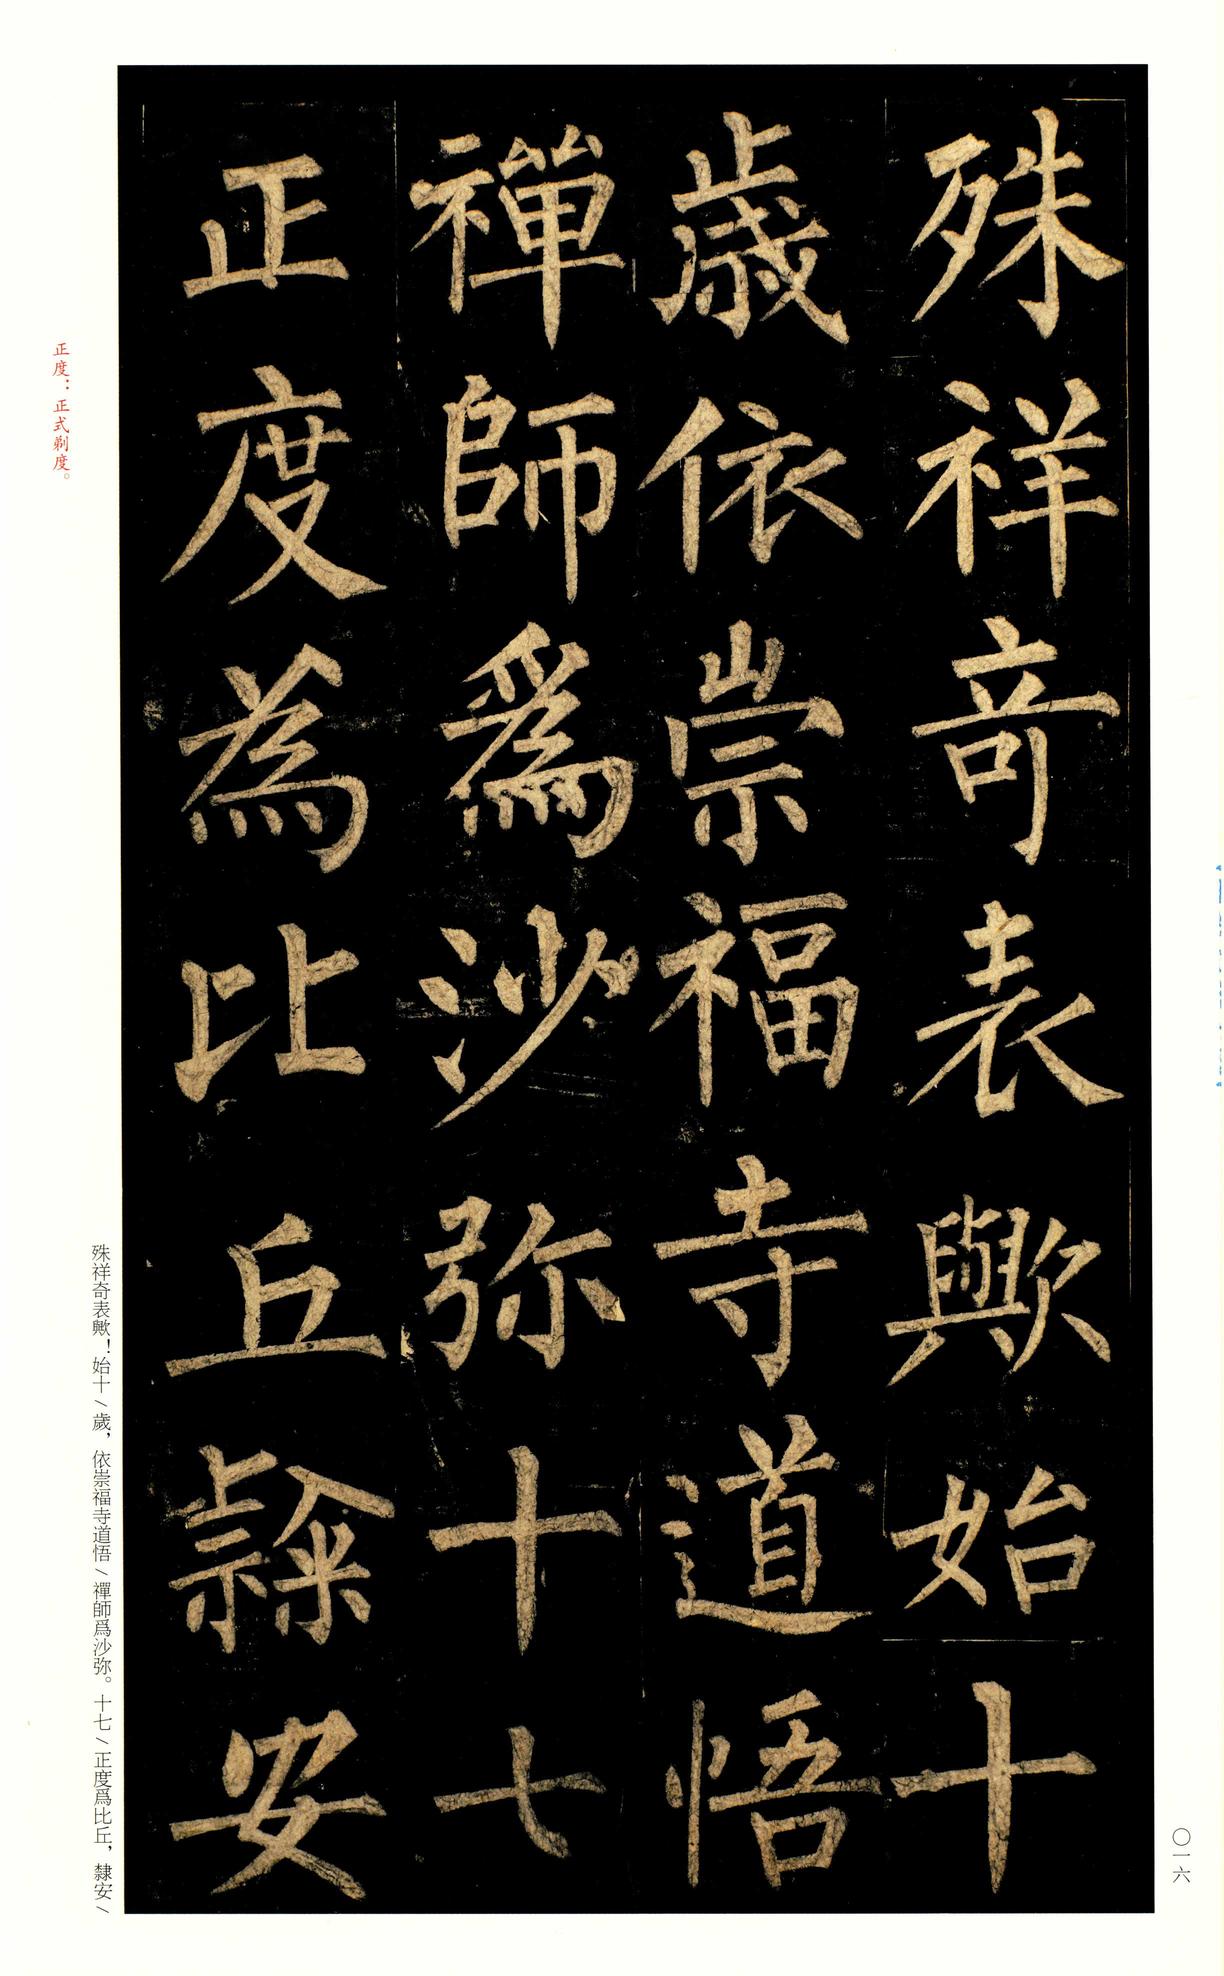 殊祥奇表歟始十
歲依崇福寺道悟
禪師爲沙弥十七
正度為比丘隸安
正度：正式剃度。
殊祥奇表歟！始十／歲，依崇福寺道悟／禪師爲沙弥。十七／正度爲比丘，隸安／
〇一六